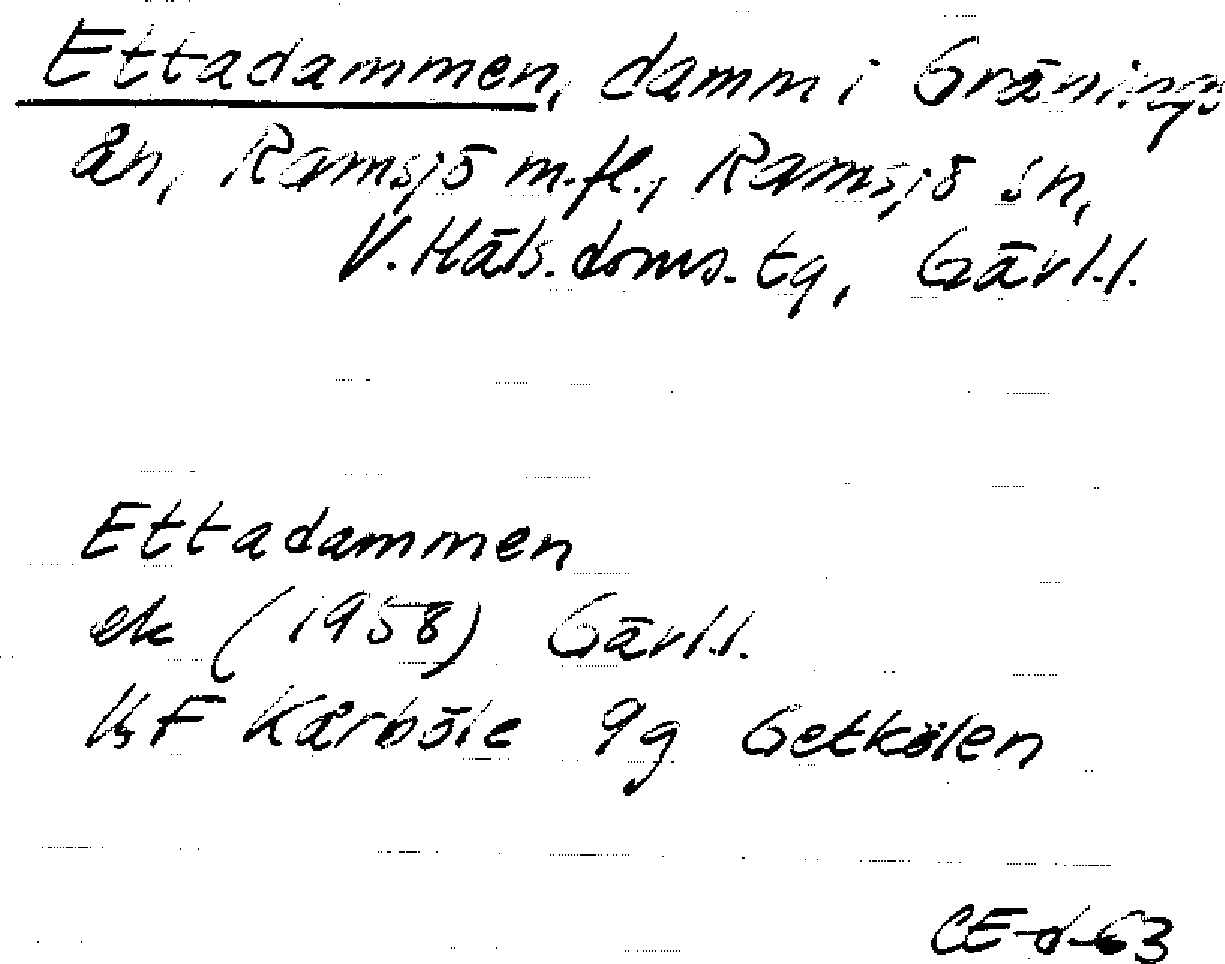 Ettadammen, damm i Gränings
ån, Ramsjö m.fl., Ramsjö sn,
V. Häls. doms. tg, Gävl.l.
Ettadammen
ek (1958) Gävl.l.
Kårböle 9g Getkölen
CE-d-63